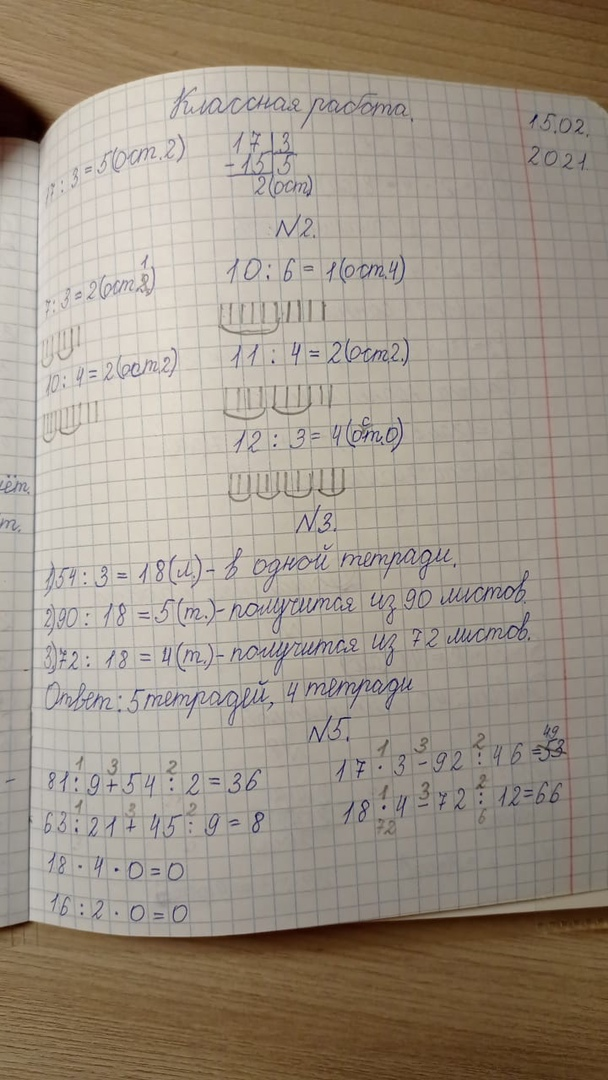 Классная работа.
15.02.
2021
17 : 3 = 5(ост.2)
17 3
- 15 5
2(ост)
N2.
7 : 3 = 2(ост. 1)
10 : 6 = 1(ост.4)
10 : 4 = 2(ост.2)
11 : 4 = 2(ост2.)
12 : 3 = 4(ост.0)
N3.
1)54 : 3 = 18(л.) - в одной тетради.
2)90 : 18 = 5(т.) - получится из 90 листов.
3)72 : 18 = 4(т.) - получится из 72 листов.
Ответ: 5 тетрадей, 4 тетради
N5.
1 3 2
81 : 9 + 54 : 2 = 36
1 3 2
63 : 21 + 45 : 9 = 8
18 · 4 · 0 = 0
16 : 2 · 0 = 0
1 3 2 49
17 · 3 - 92 : 46 = 53
1 3 2
18 · 4 - 72 : 12 = 66
72 6